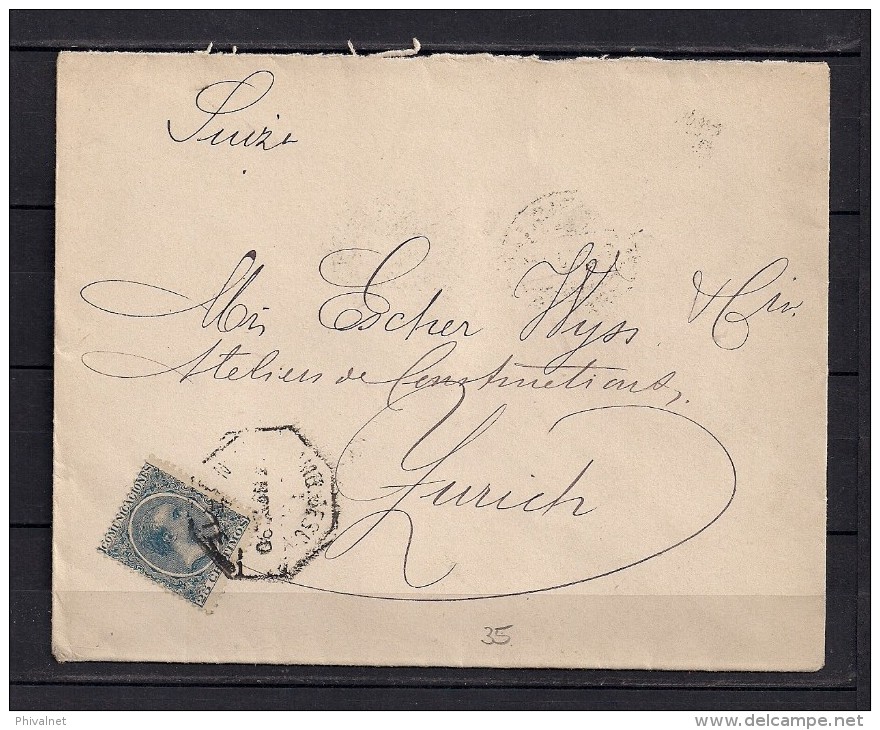 Suiza
Mrs Escher Wyss & Cie.
Ateliers de Constructions,
Zurich
COMUNICACIONES
25 CÉNTIMOS
AMB DESC
35
Phivalnet
www.delcampe.net